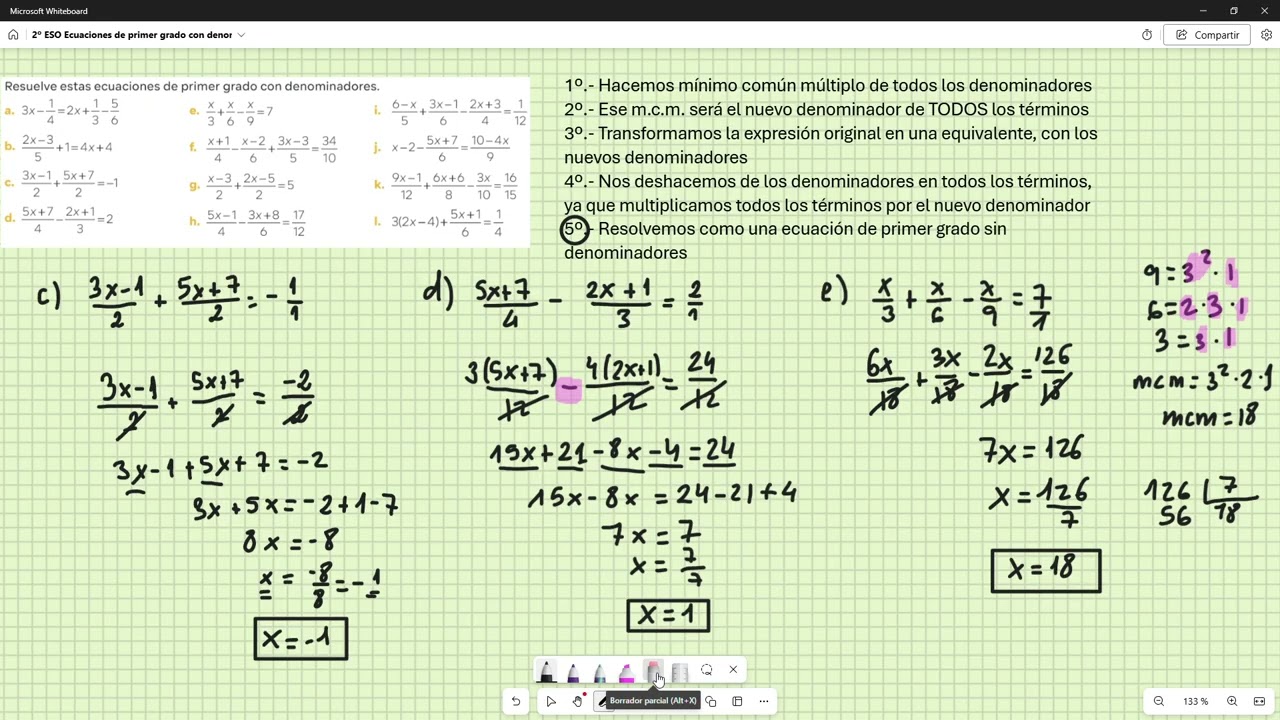 Microsoft Whiteboard
2º ESO Ecuaciones de primer grado con denor
Compartir
Resuelve estas ecuaciones de primer grado con denominadores.
a. 3x-1/4=2x+1/3-5/6
b. (2x-3)/5+1=4x+4
c. (3x-1)/2+(5x+7)/2=-1
d. (5x+7)/4-(2x+1)/3=2
e. x/3+x/6-x/9=7
f. (x+1)/4-(x-2)/6+(3x-3)/5=34/10
g. (x-3)/2+(2x-5)/2=5
h. (5x-1)/4-(3x+8)/6=17/12
i. (6-x)/5+(3x-1)/6-(2x+3)/4=1/12
j. x-2-(5x+7)/6=(10-4x)/9
k. (9x-1)/12+(6x+6)/8-3x/10=16/15
l. 3(2x-4)+(5x+1)/6=1/4
1º.- Hacemos mínimo común múltiplo de todos los denominadores
2º.- Ese m.c.m. será el nuevo denominador de TODOS los términos
3º.- Transformamos la expresión original en una equivalente, con los
nuevos denominadores
4º.- Nos deshacemos de los denominadores en todos los términos,
ya que multiplicamos todos los términos por el nuevo denominador
5º.- Resolvemos como una ecuación de primer grado sin
denominadores
c) (3x-1)/2 + (5x+7)/2 = -1/1
(3x-1)/2 + (5x+7)/2 = -2/2
3x-1+5x+7=-2
3x+5x=-2+1-7
8x=-8
x = -8/8 = -1
x=-1
d) (5x+7)/4 - (2x+1)/3 = 2/1
3(5x+7)/12 - 4(2x+1)/12 = 24/12
15x+21-8x-4=24
15x-8x = 24-21+4
7x=7
x = 7/7
x=1
e) x/3 + x/6 - x/9 = 7/1
6x/18 + 3x/18 - 2x/18 = 126/18
7x=126
x=126/7
x=18
9=3²·1
6=2·3·1
3=3·1
mcm=3²·2·1
mcm=18
126 7
56 18
Borrador parcial (Alt+X)
133 %